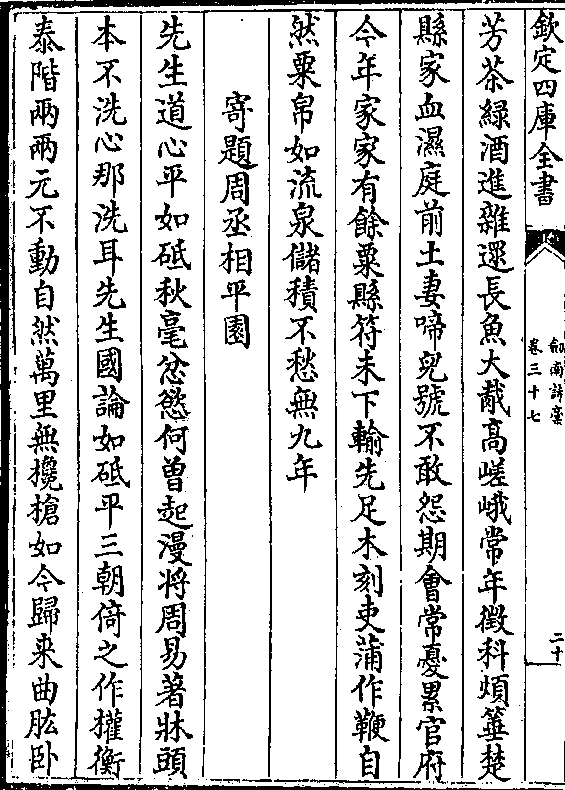 欽定四庫全書
劍南詩稾
卷三十七
二十
芳茶綠酒進雜遝長魚大胾髙嵯峨常年徴科煩箠楚
縣家血濕庭前土妻啼兒號不敢怨期㑹常憂累官府
今年家家有餘粟縣符未下輸先足木刻吏蒲作鞭自
然粟帛如流泉儲積不愁無九年
寄題周丞相平園
先生道心平如砥秋毫忿慾何曾起漫將周易著牀頭
本不洗心那洗耳先生國論如砥平三朝倚之作權衡
泰階兩兩元不動自然萬里無攙槍如今歸来曲肱卧